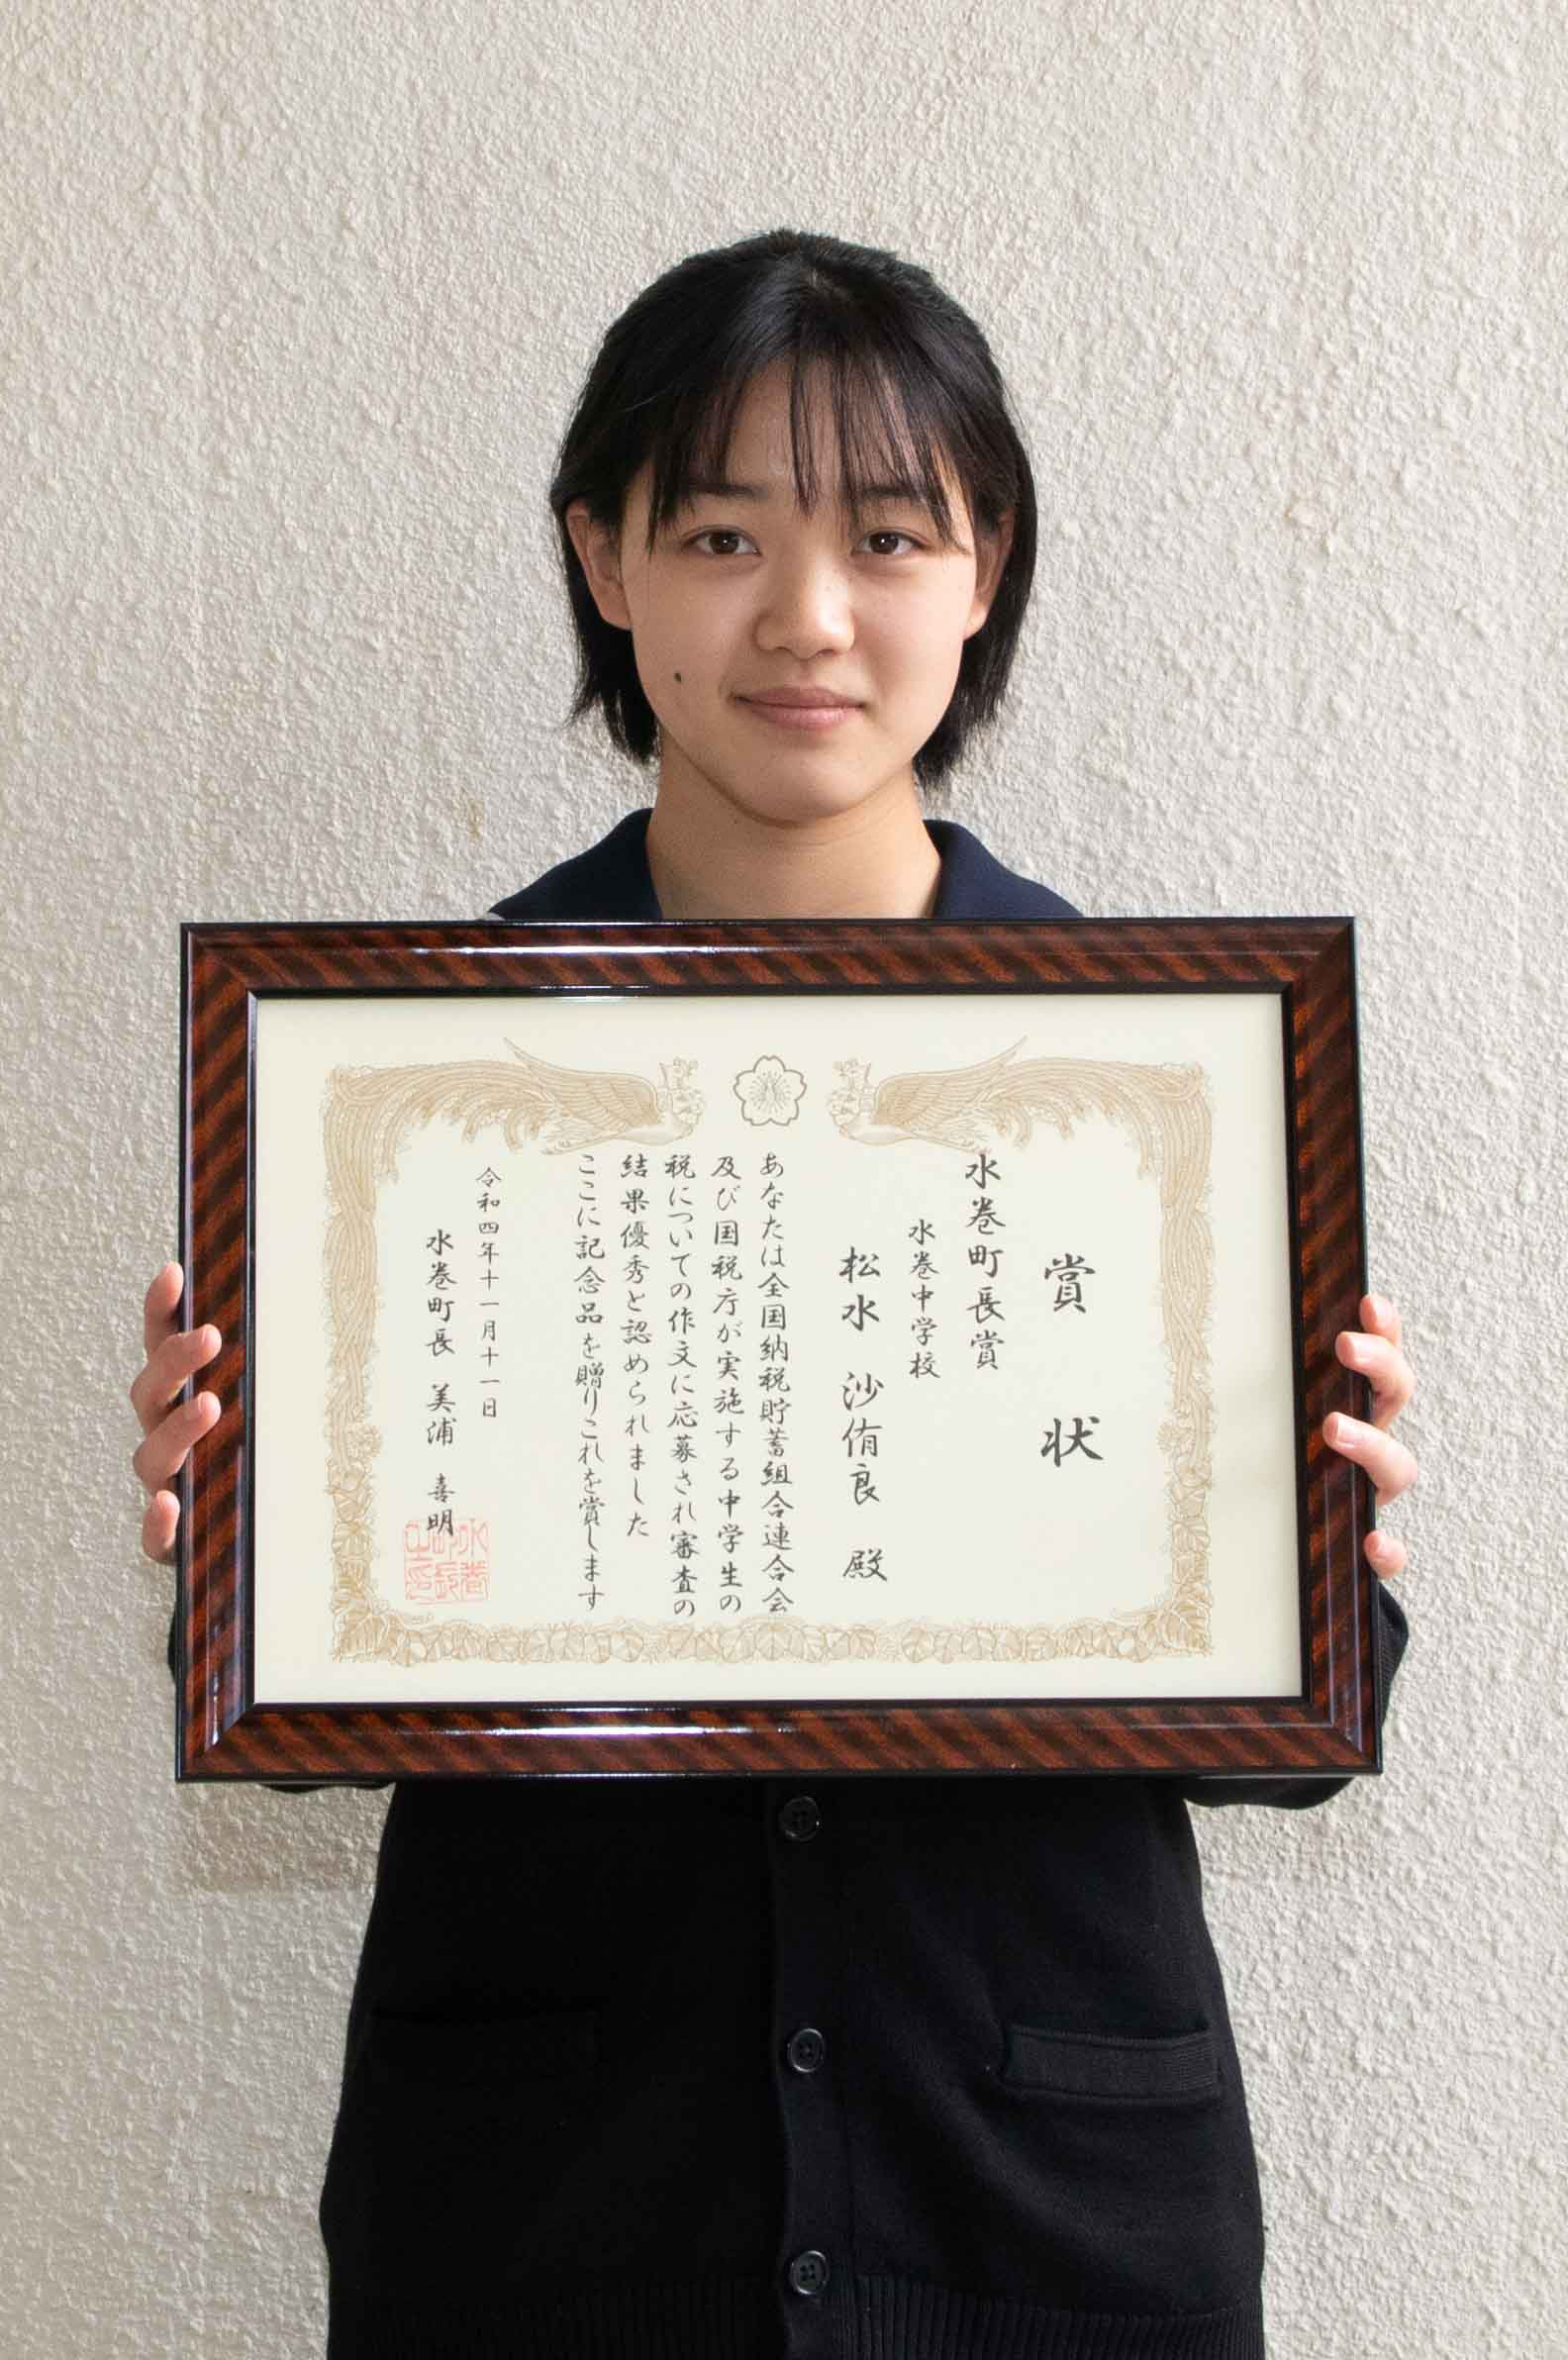 賞状
水巻町長賞
水巻中学校
松水 沙侑良 殿
あなたは全国納税貯蓄組合連合会
及び国税庁が実施する中学生の
税についての作文に応募され審査の
結果優秀と認められました
ここに記念品を贈りこれを賞します
令和四年十一月十一日
水巻町長 美浦 喜明